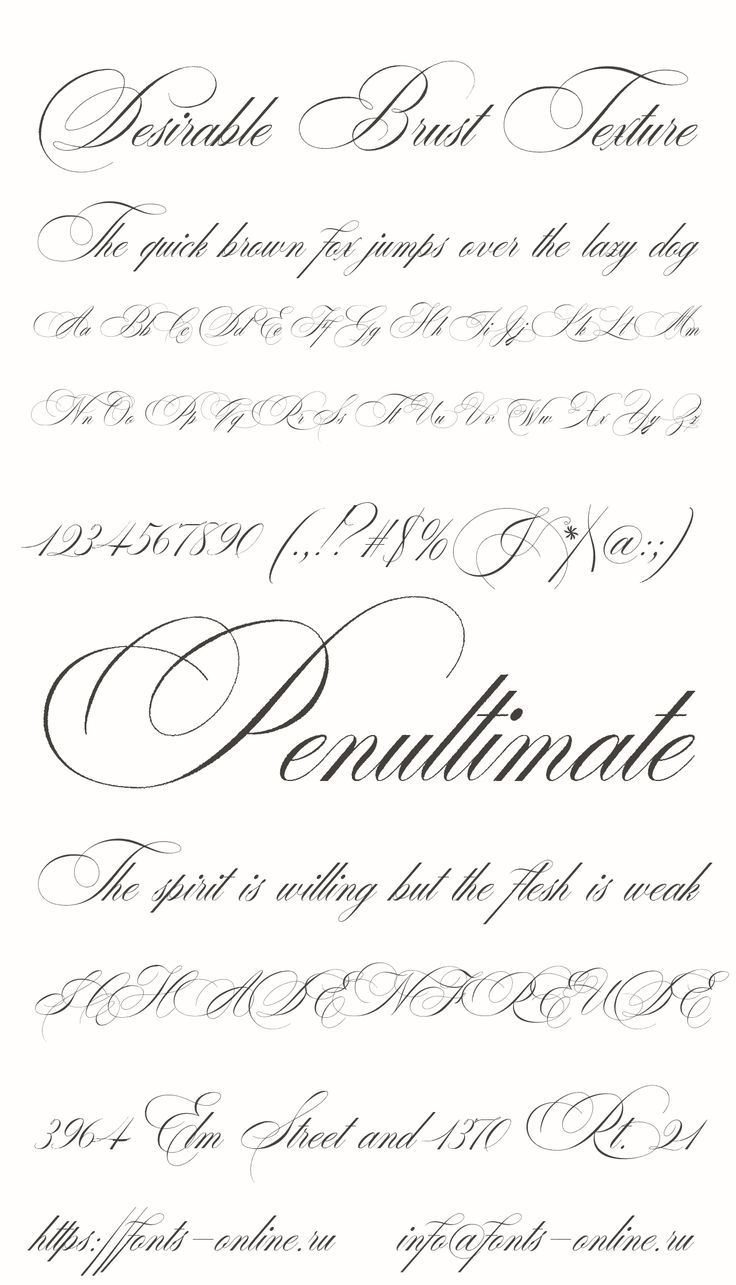 Desirable Brust Texture
The quick brown fox jumps over the lazy dog
Aa Bb Cc Dd Ee Ff Gg Hh Ii Jj Kk Ll Mm
Nn Oo Pp Qq Rr Ss Tt Uu Vv Ww Xx Yy Zz
1234567890 (.,!?#$%&*\@:;)
Penultimate
The spirit is willing but the flesh is weak
SCHADENFREUDE
3964 Elm Street and 1370 Rt. 21
https://fonts-online.ru info@fonts-online.ru